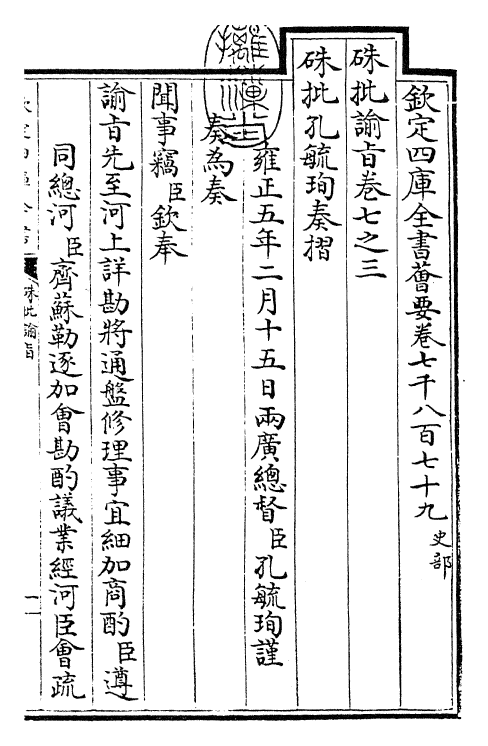 欽定四庫全書薈要卷七千八百七十九 史部
硃批諭旨卷七之三
硃批孔毓珣奏摺
雍正五年二月十五日兩廣總督臣孔毓珣謹
奏為奏
聞事竊臣欽奉
諭旨先至河上詳勘將通盤修理事宜細加商酌臣遵
同總河臣齊蘇勒逐加會勘酌議業經河臣會疏
硃批諭旨
一